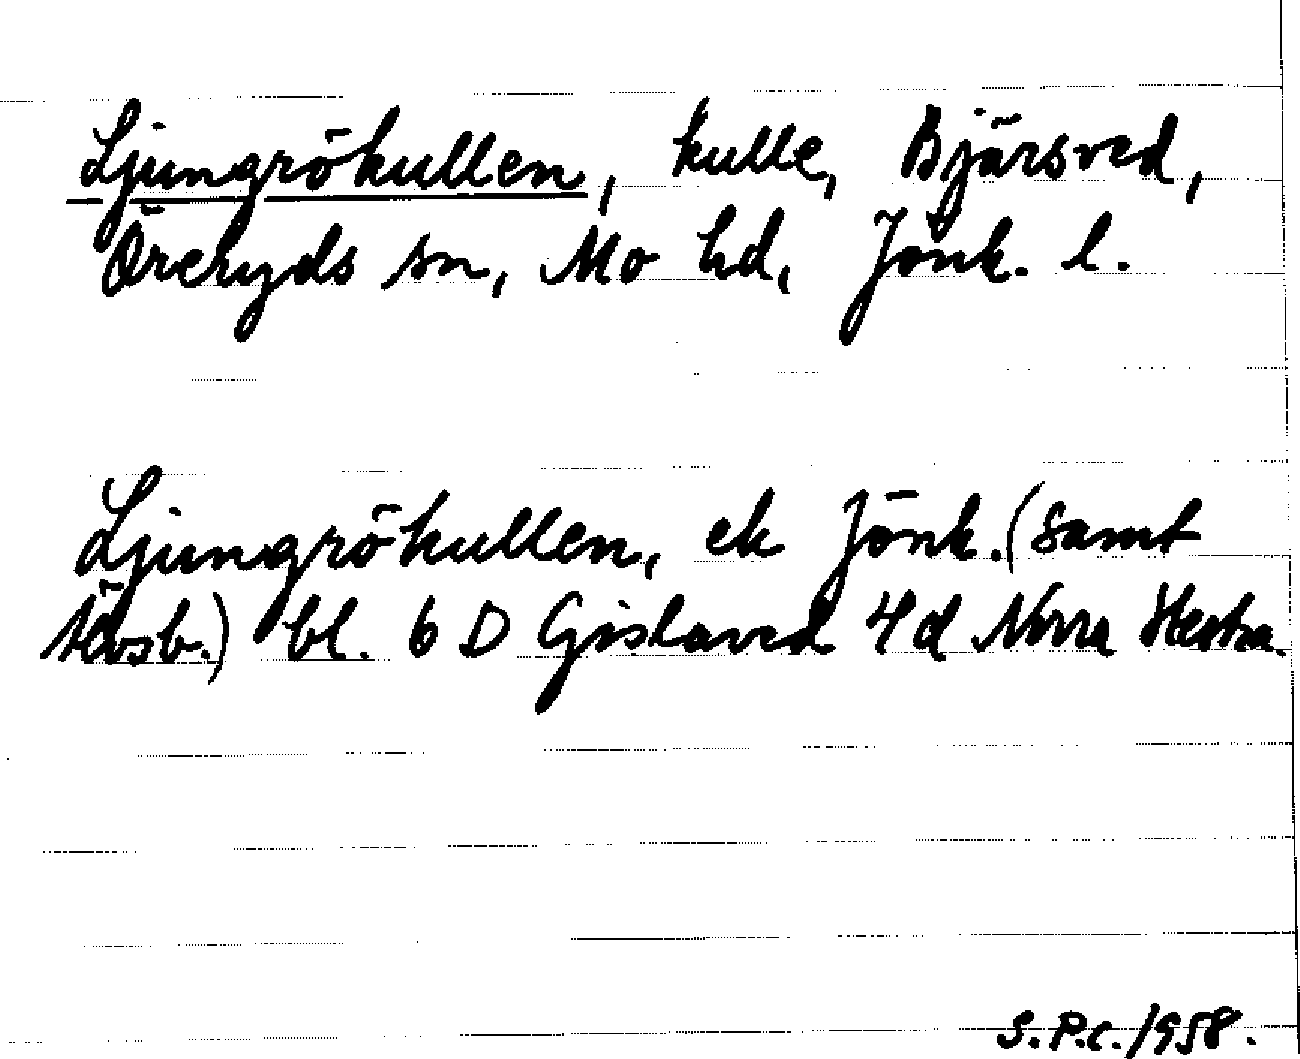 Ljungrökullen, kulle, Bjärsved,
Öreryds sn, Mo hd, Jönk. l.
Ljungrökullen, ek Jönk. (samt
Älvsb.) bl. 6 D Gislaved 4d Norra Hestra.
S.P.C. 1958.